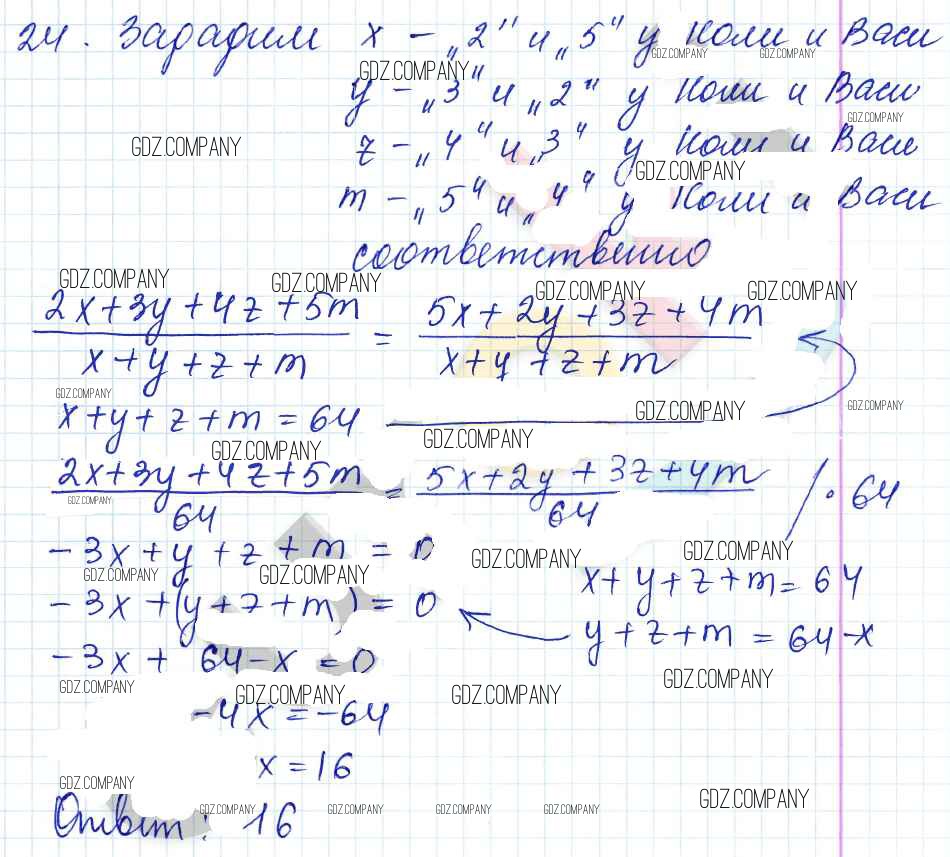 24. Зададим x – „2" и „5" у Коли и Васи
GDZ.COMPANY GDZ.COMPANY GDZ.COMPANY
y – „3" и „2" у Коли и Васи
GDZ.COMPANY
z – „4" и „3" у Коли и Васи
GDZ.COMPANY GDZ.COMPANY
m – „5" и „4" у Коли и Васи
соответственно
GDZ.COMPANY GDZ.COMPANY GDZ.COMPANY GDZ.COMPANY
2x+3y+4z+5m / x+y+z+m = 5x+2y+3z+4m / x+y+z+m
GDZ.COMPANY GDZ.COMPANY GDZ.COMPANY
x+y+z+m = 64
GDZ.COMPANY GDZ.COMPANY
2x+3y+4z+5m / 64 = 5x+2y+3z+4m / 64 / · 64
GDZ.COMPANY
-3x+y+z+m = 0
GDZ.COMPANY GDZ.COMPANY GDZ.COMPANY GDZ.COMPANY
x+y+z+m=64
-3x+(y+z+m) = 0
y+z+m = 64-x
-3x+ 64-x =0
GDZ.COMPANY GDZ.COMPANY GDZ.COMPANY GDZ.COMPANY
-4x =-64
x =16
GDZ.COMPANY GDZ.COMPANY
Ответ: 16
GDZ.COMPANY GDZ.COMPANY GDZ.COMPANY GDZ.COMPANY